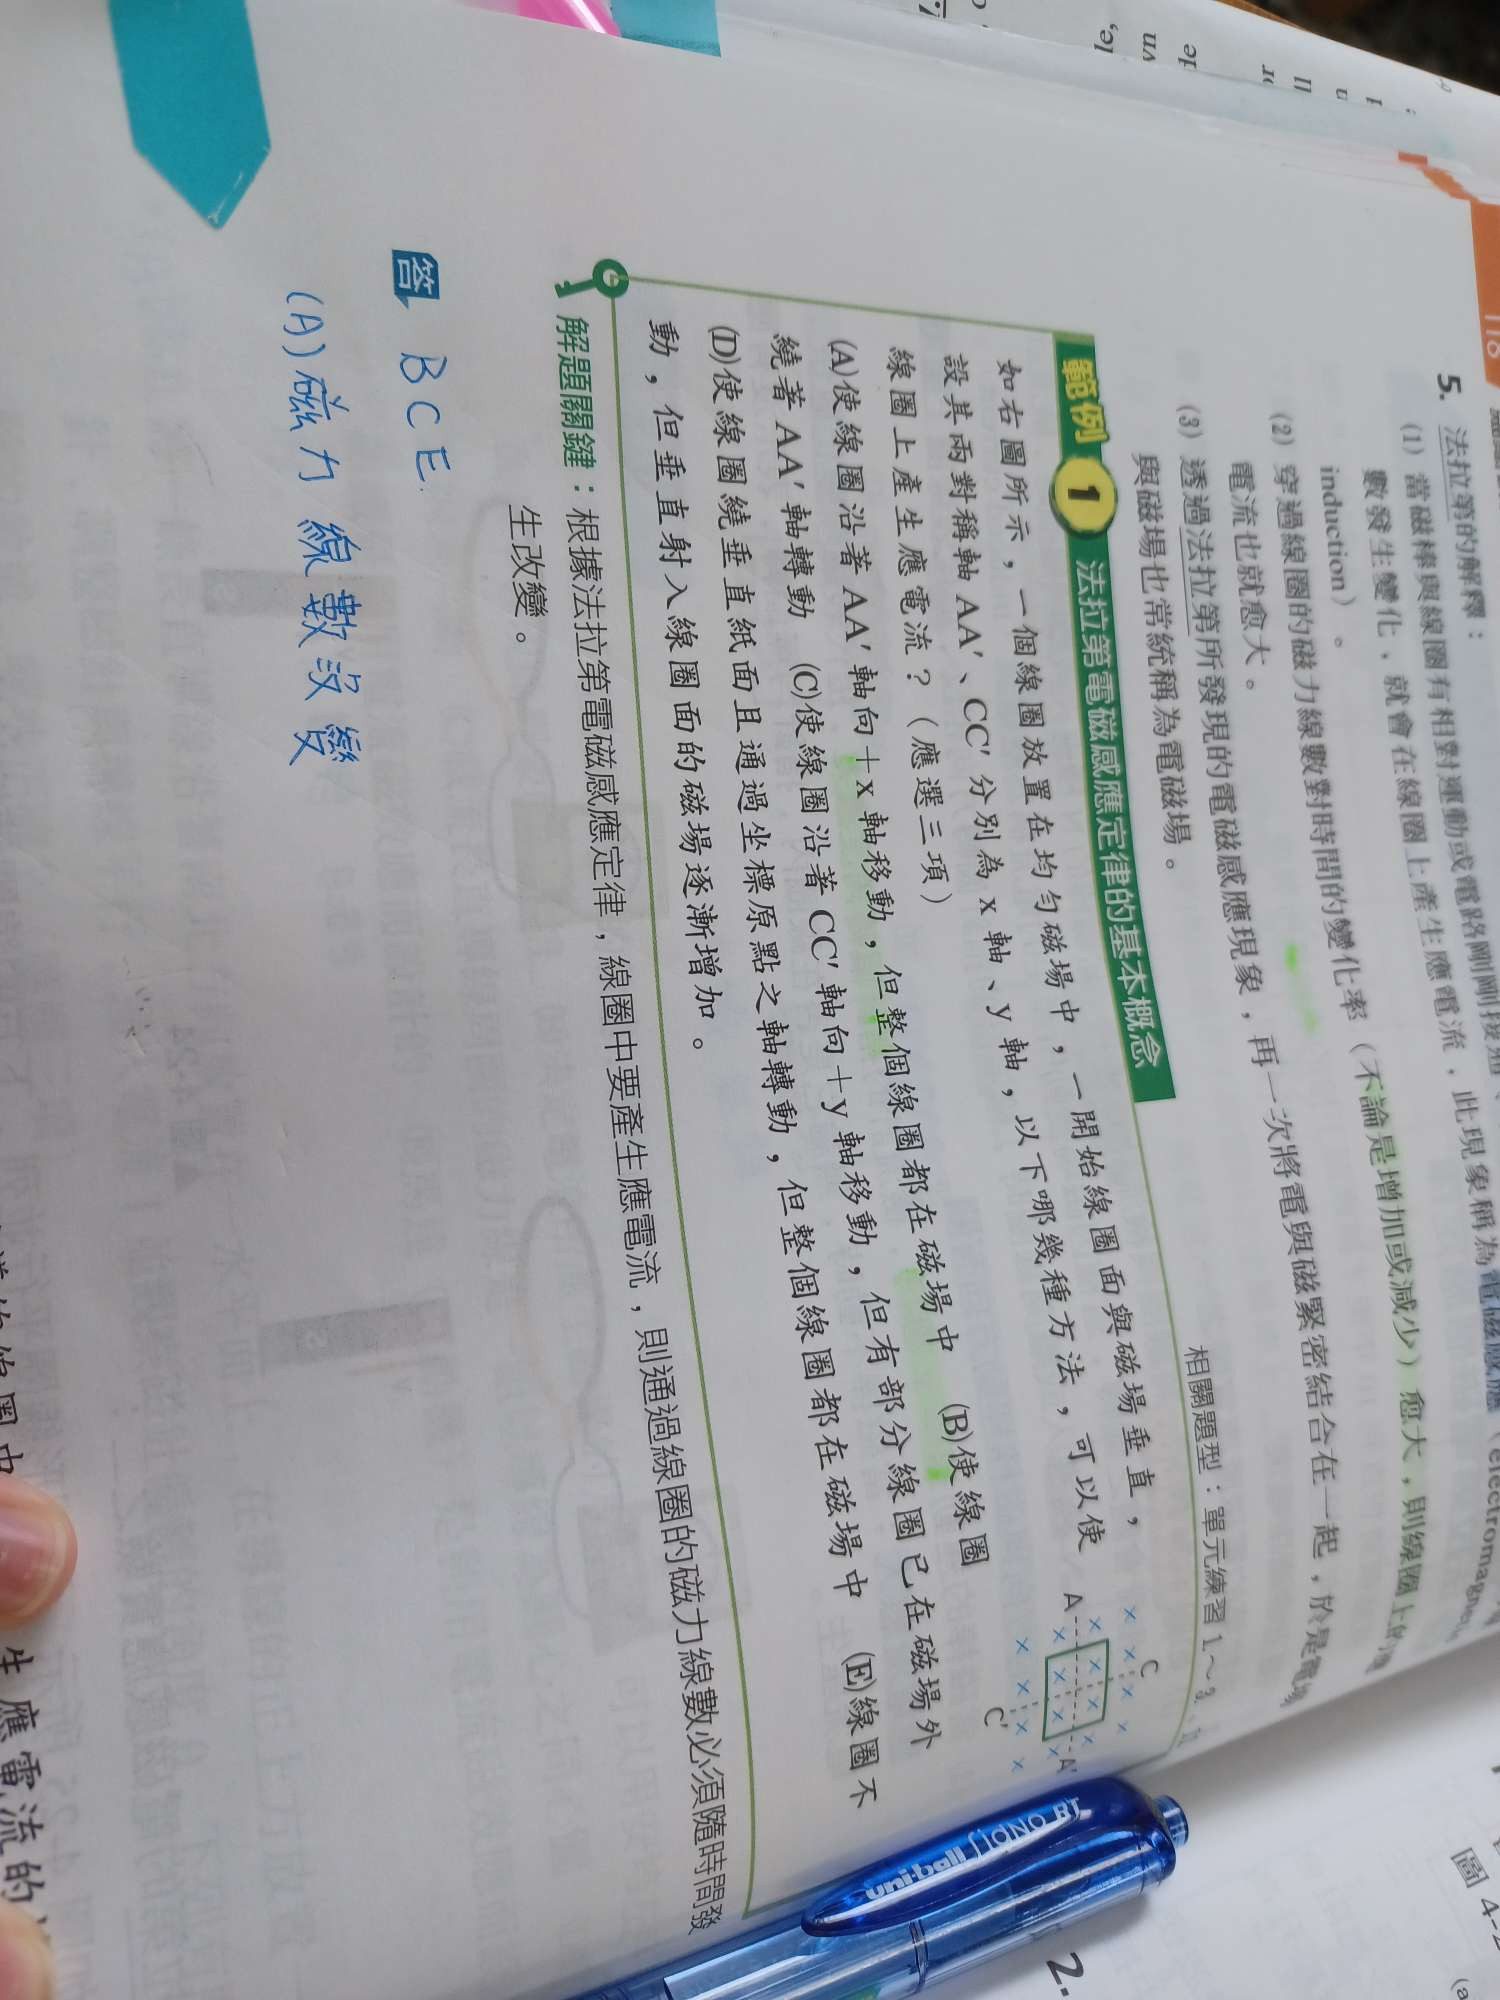 118
5. 法拉第的解釋：
(1) 當磁棒與線圈有相對運動或電路剛剛接通
數發生變化，就會在線圈上產生應電流，此現象稱為電磁感應（electromagnetic
induction）。
(2) 穿過線圈的磁力線數對時間的變化率（不論是增加或減少）愈大，則線圈上的應
電流也就愈大。
(3) 透過法拉第所發現的電磁感應現象，再一次將電與磁緊密結合在一起，於是電場
與磁場也常統稱為電磁場。
範例 1 法拉第電磁感應定律的基本概念
相關題型：單元練習 1.～3.
如右圖所示，一個線圈放置在均勻磁場中，一開始線圈面與磁場垂直，
設其兩對稱軸 AA′、CC′ 分別為 x 軸、y 軸，以下哪幾種方法，可以使
線圈上產生應電流？（應選三項）
(A)使線圈沿著 AA′ 軸向＋x 軸移動，但整個線圈都在磁場中 (B)使線圈
繞著 AA′ 軸轉動 (C)使線圈沿著 CC′ 軸向＋y 軸移動，但有部分線圈已在磁場外
(D)使線圈繞垂直紙面且通過坐標原點之軸轉動，但整個線圈都在磁場中 (E)線圈不
動，但垂直射入線圈面的磁場逐漸增加。
C
A
A′
C′
解題關鍵：根據法拉第電磁感應定律，線圈中要產生應電流，則通過線圈的磁力線數必須隨時間發
生改變。
答 B C E.
(A) 磁力線數沒變
uni-ball SIGNO RT
2.